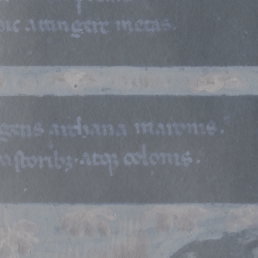 ic attingere metas.
gens archana maronis.
astoribꝫ. atqꝫ colonis.